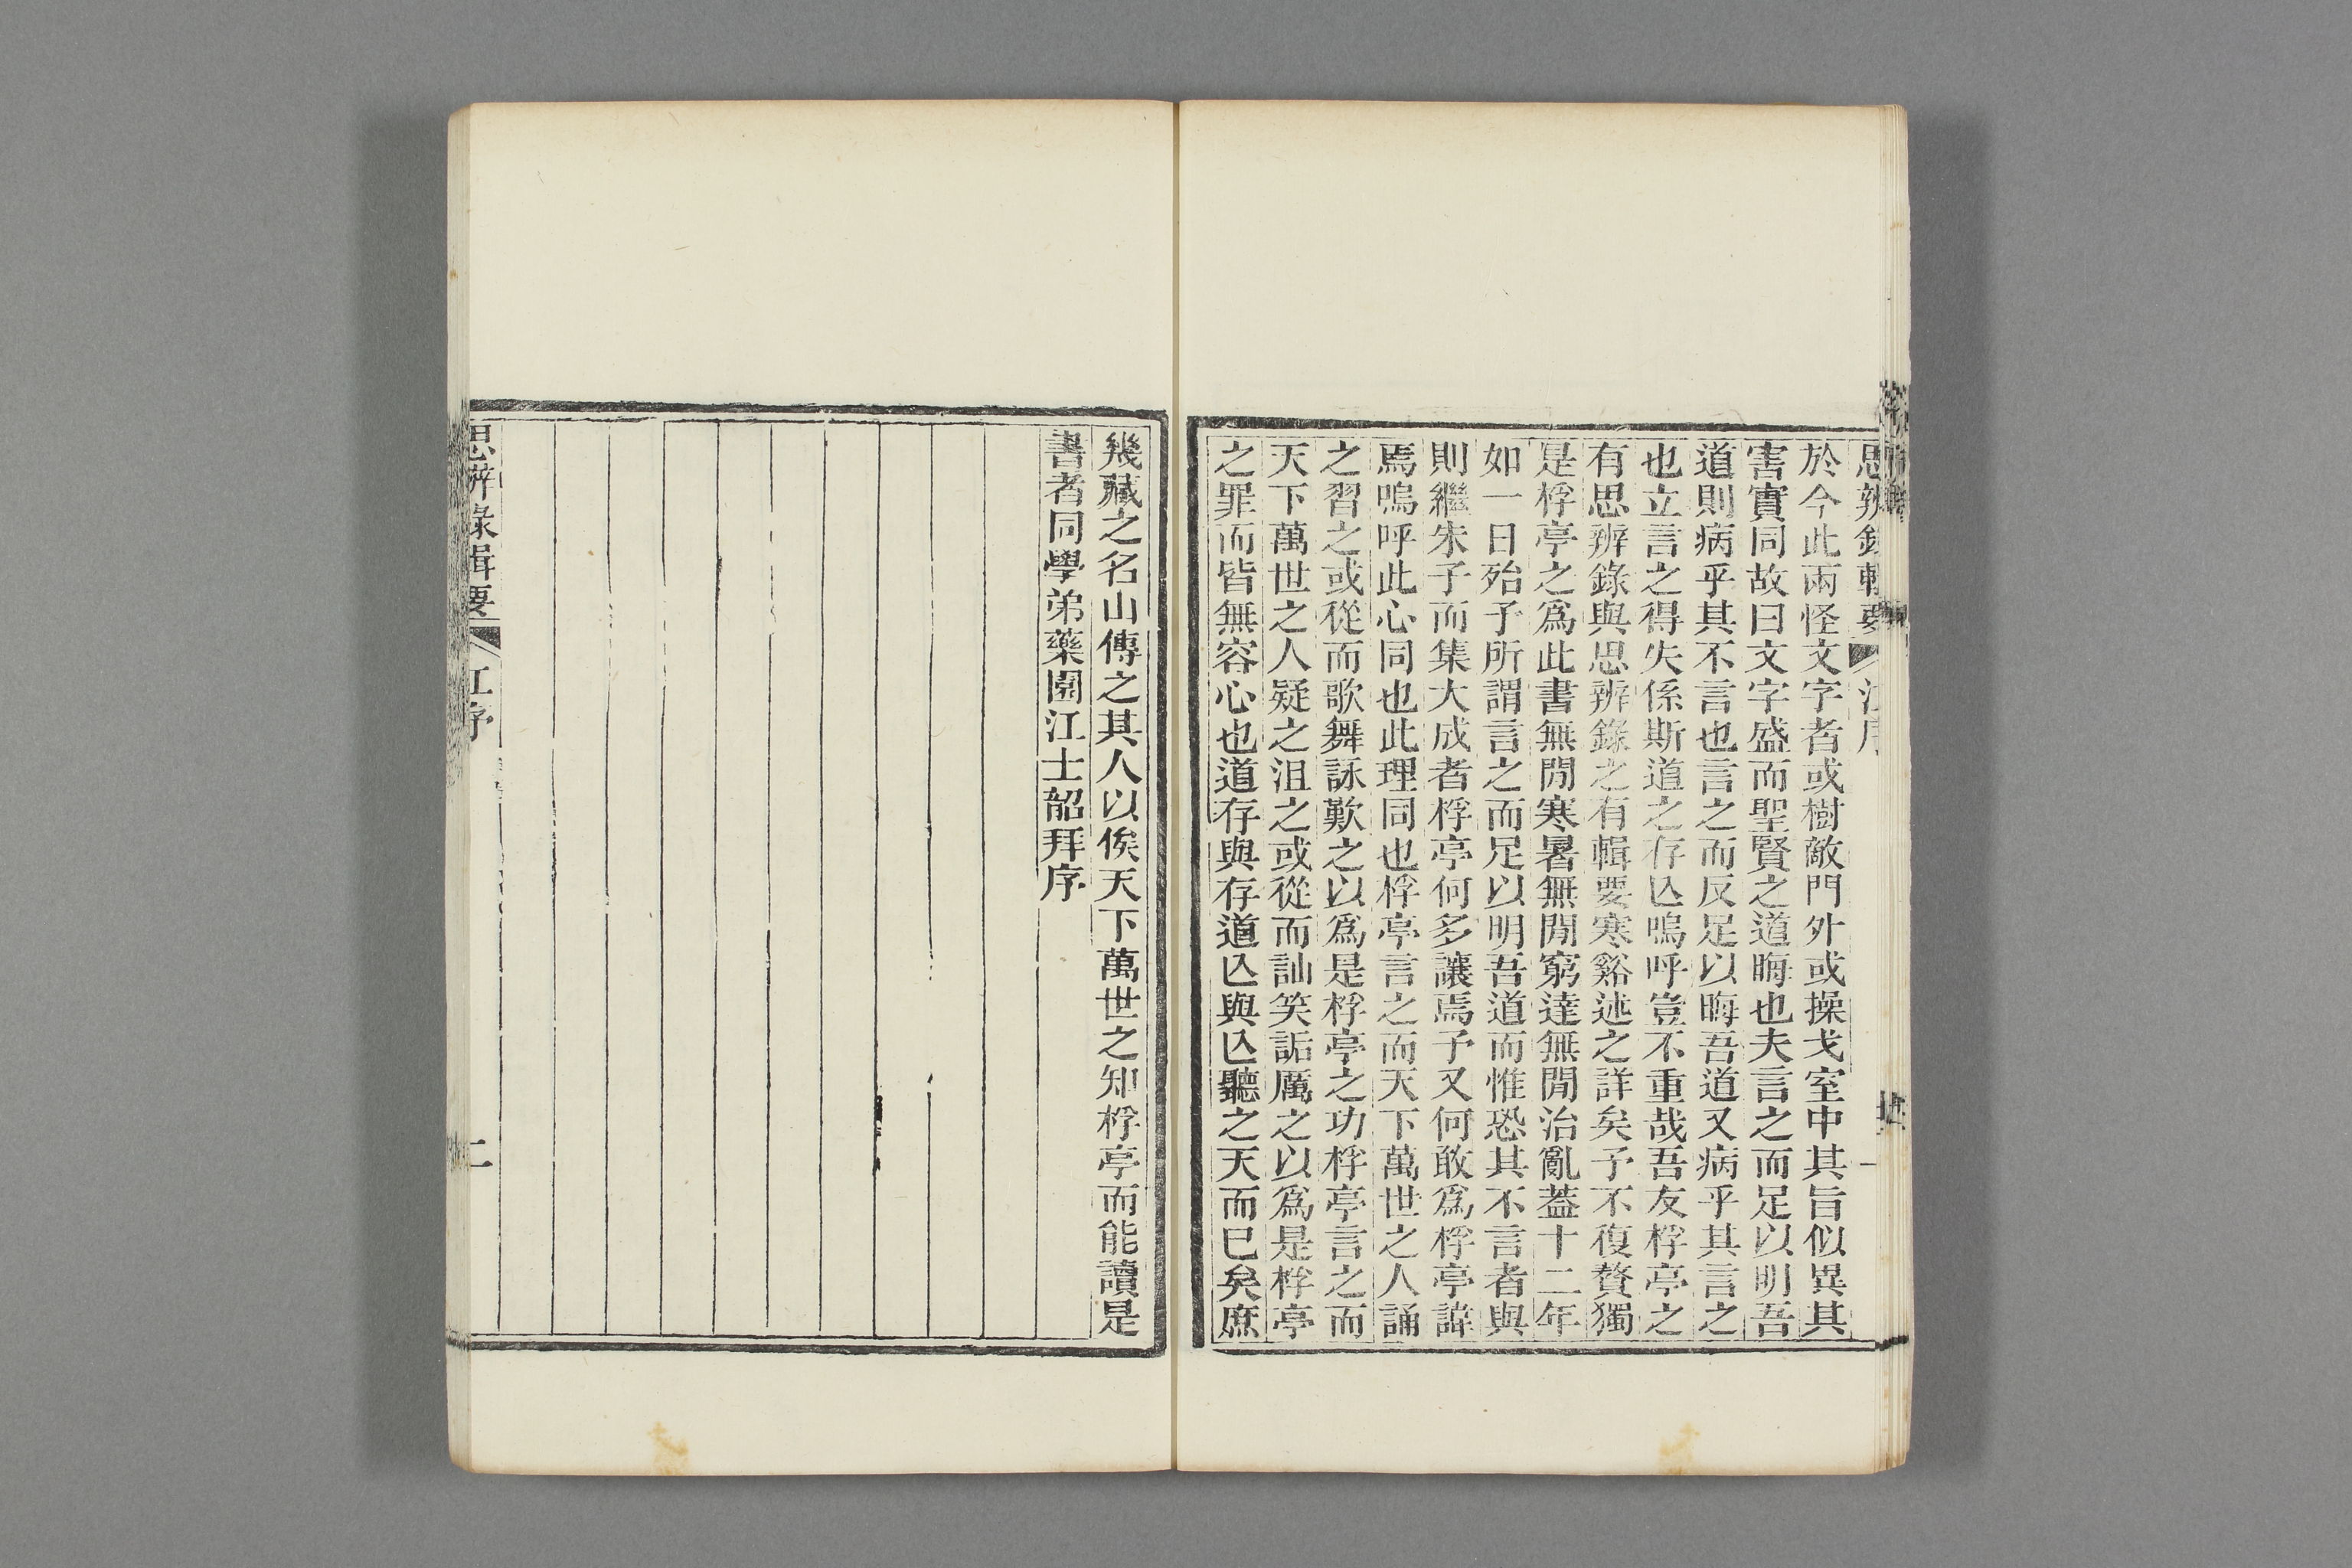 思辨錄輯要 江序 一
於今此兩怪文字者或樹敵門外或操戈室中其旨似異其
害實同故曰文字盛而聖賢之道晦也夫言之而足以明吾
道則病乎其不言也言之而反足以晦吾道又病乎其言之
也立言之得失係斯道之存亾嗚呼豈不重哉吾友桴亭之
有思辨錄與思辨錄之有輯要寒谿述之詳矣予不復贅獨
是桴亭之爲此書無閒寒暑無閒窮達無閒治亂葢十二年
如一日殆予所謂言之而足以明吾道而惟恐其不言者與
則繼朱子而集大成者桴亭何多讓焉予又何敢爲桴亭諱
焉嗚呼此心同也此理同也桴亭言之而天下萬世之人誦
之習之或從而歌舞詠歎之以爲是桴亭之功桴亭言之而
天下萬世之人疑之沮之或從而訕笑詬厲之以爲是桴亭
之罪而皆無容心也道存與存道亾與亾聽之天而已矣庶
幾藏之名山傳之其人以俟天下萬世之知桴亭而能讀是
書者同學弟藥園江士韶拜序
思辨錄輯要 江序 二